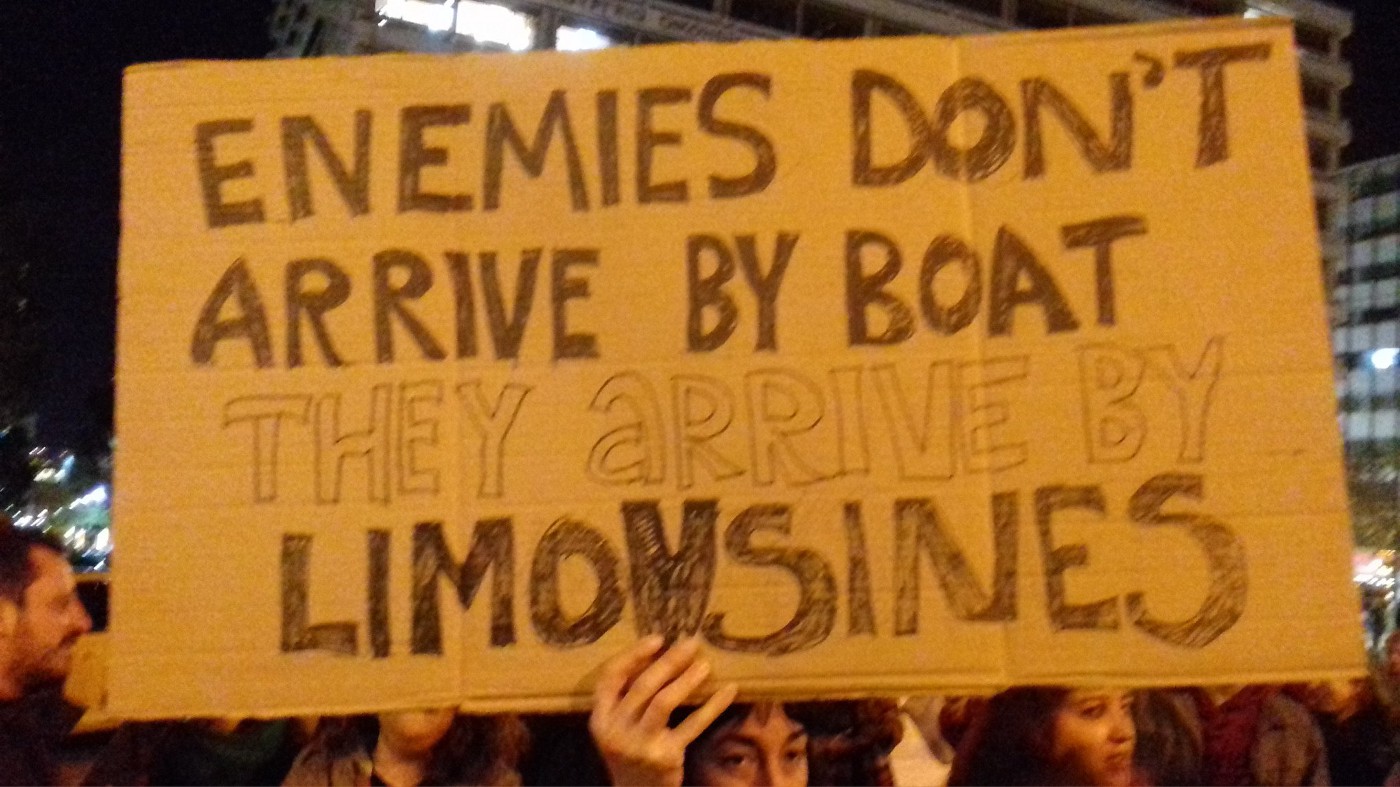 ENEMIES DON'T
ARRIVE BY BOAT
THEY aRRIVE BY
LIMOUSINES